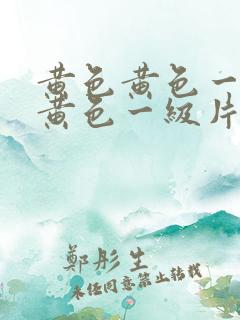 黄色黄色一
黄色一級片
鄭彤生
未经同意禁止转载